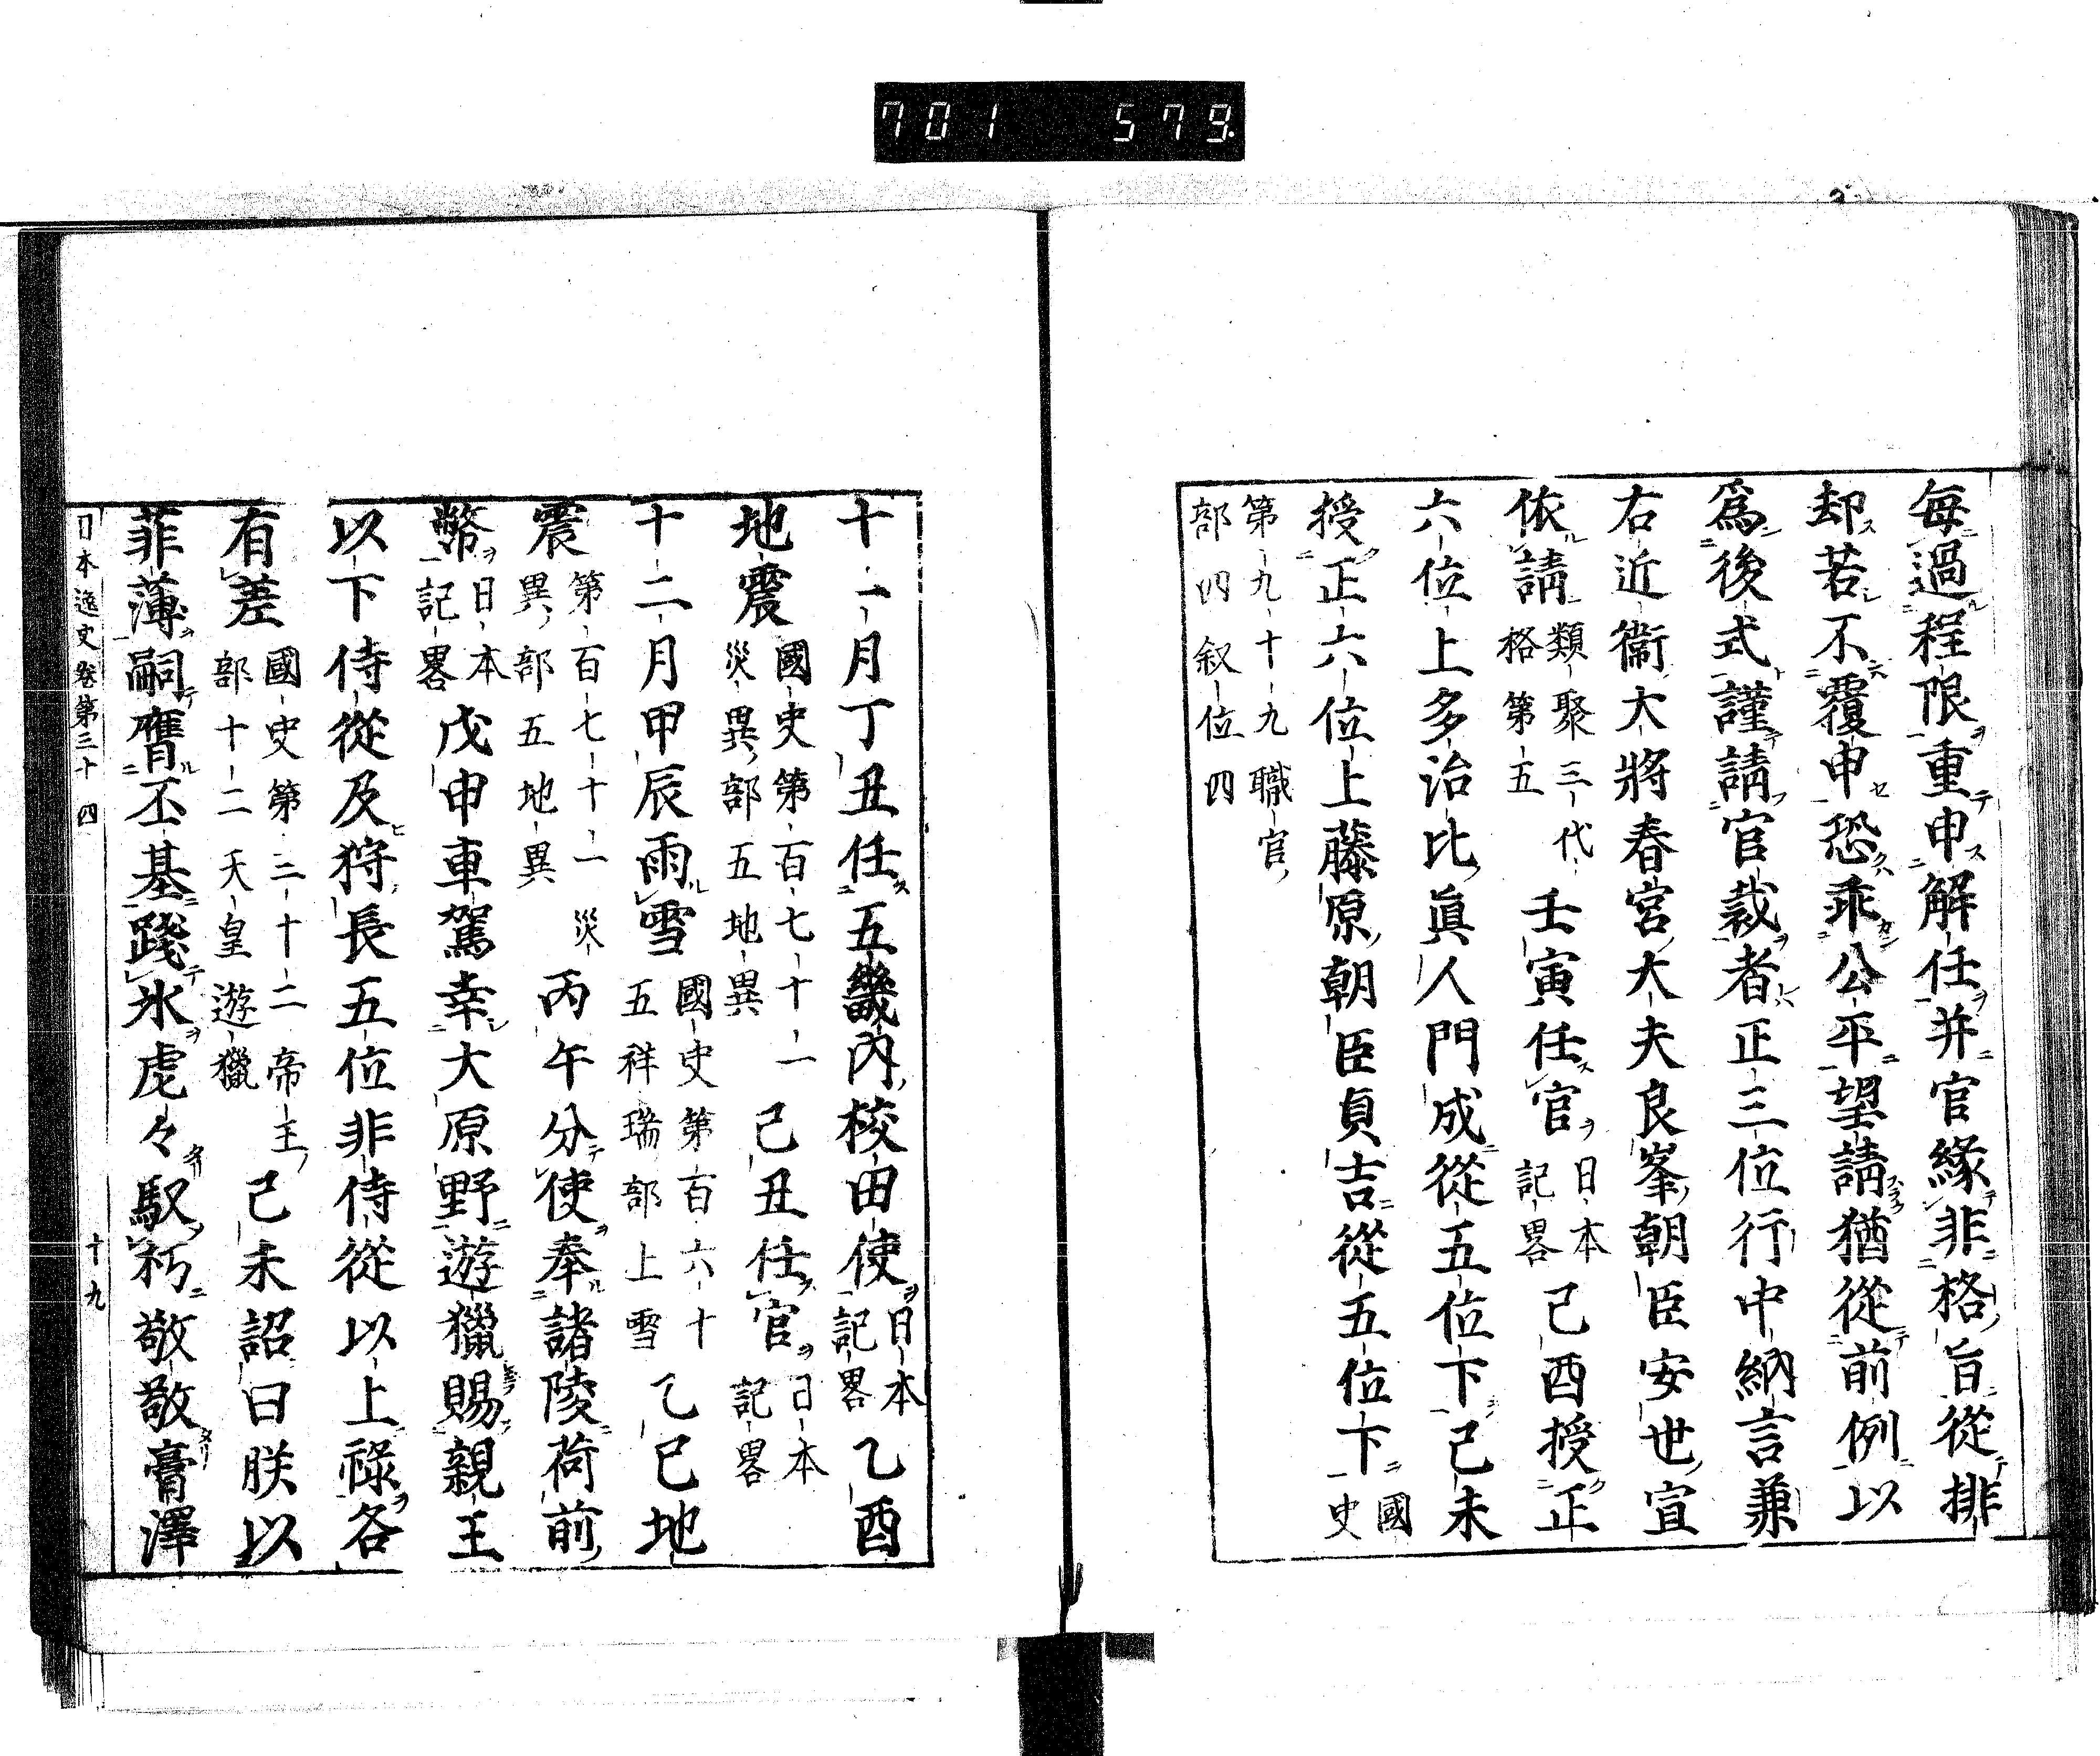 701 579.
毎過程限重申解任并官縁非格旨從排
却若不覆申恐乖公平望請猶從前例以
爲後式謹請官裁者正三位行中納言兼
右近衞大將春宮大夫良峯朝臣安世宣
依請類聚三代格第五壬寅任官日本記畧己酉授正
六位上多治比眞人門成從五位下己未
授正六位上藤原朝臣貞吉從五位下國史
第九十九職官部四叙位四
十一月丁丑任五畿内校田使日本記畧乙酉
地震國史第百七十一災異部五地異己丑任官日本記畧
十二月甲辰雨雪國史第百六十五祥瑞部上雪乙巳地
震第百七十一災異部五地異丙午分使奉諸陵荷前
幣日本記畧戊申車駕幸大原野遊獵賜親王
以下侍從及狩長五位非侍從以上祿各
有差國史第三十二帝王部十二天皇遊獵己未詔曰朕以
菲薄嗣膺丕基踐氷虎々馭朽敬敬膏澤
日本逸史卷第三十四 十九